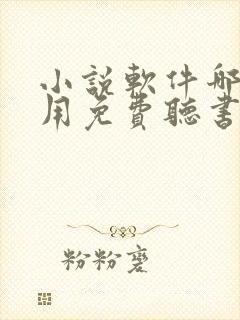 小說軟件哪
用免費聽書
粉粉蔓